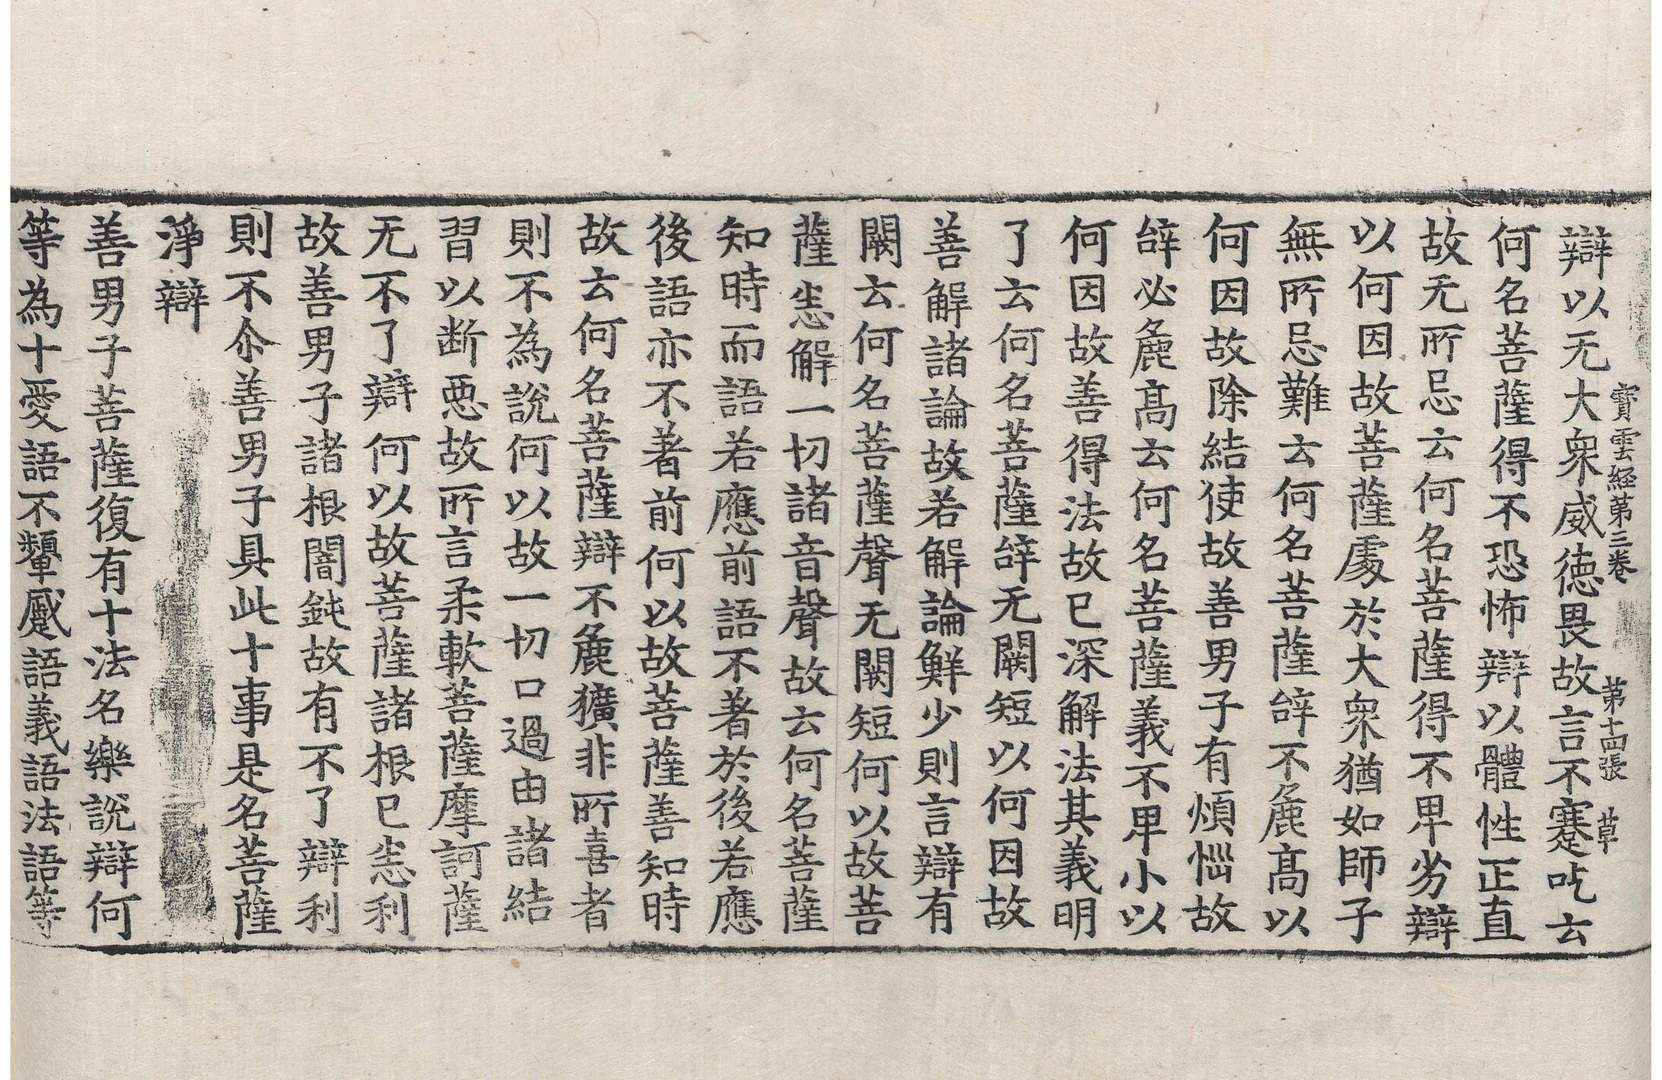 辯以无大衆威德畏故言不蹇吃云
寳雲経苐三卷 苐十四張 草
何名菩薩得不恐怖辯以體性正直
故无所忌云何名菩薩得不卑劣辯
以何因故菩薩處於大衆猶如師子
無所忌難云何名菩薩辝不麁髙以
何因故除結使故善男子有煩惱故
辝必麁髙云何名菩薩義不卑小以
何因故善得法故已深解法其義明
了云何名菩薩辝无闕短以何因故
善解諸論故若解論鮮少則言辯有
闕云何名菩薩聲无闕短何以故菩
薩悉解一切諸音聲故云何名菩薩
知時而語若應前語不著於後若應
後語亦不著前何以故菩薩善知時
故云何名菩薩辯不麁獷非所喜者
則不為說何以故一切口過由諸結
習以断惡故所言柔軟菩薩摩訶薩
无不了辯何以故菩薩諸根已悉利
故善男子諸根闇鈍故有不了辯利
則不尒善男子具此十事是名菩薩
淨辯
善男子菩薩復有十法名樂說辯何
等為十愛語不顰蹙語義語法語等